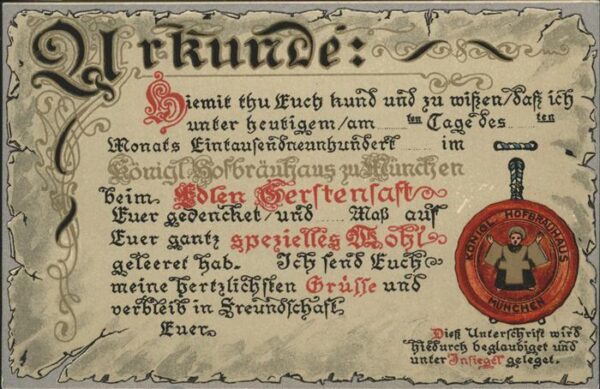 Urkunde:
Hiemit thu Euch kund und zu wißen/daß ich
unter heutigem/am ten Tage des ten
Monats Eintausendneunhundert im
Königl. Hofbräuhaus zu München
beim Edlen Gerstensaft
Euer gedencket/und Maß auf
Euer gantz spezielles Wohl
geleeret hab. Ich send Euch
meine hertzlichsten Grüsse und
verbleib in Freundschaft
Euer
KÖNIGL. HOFBRÄUHAUS
MÜNCHEN
Dieß Unterschrift wird
hiedurch beglaubiget und
unter Insiegel geleget.